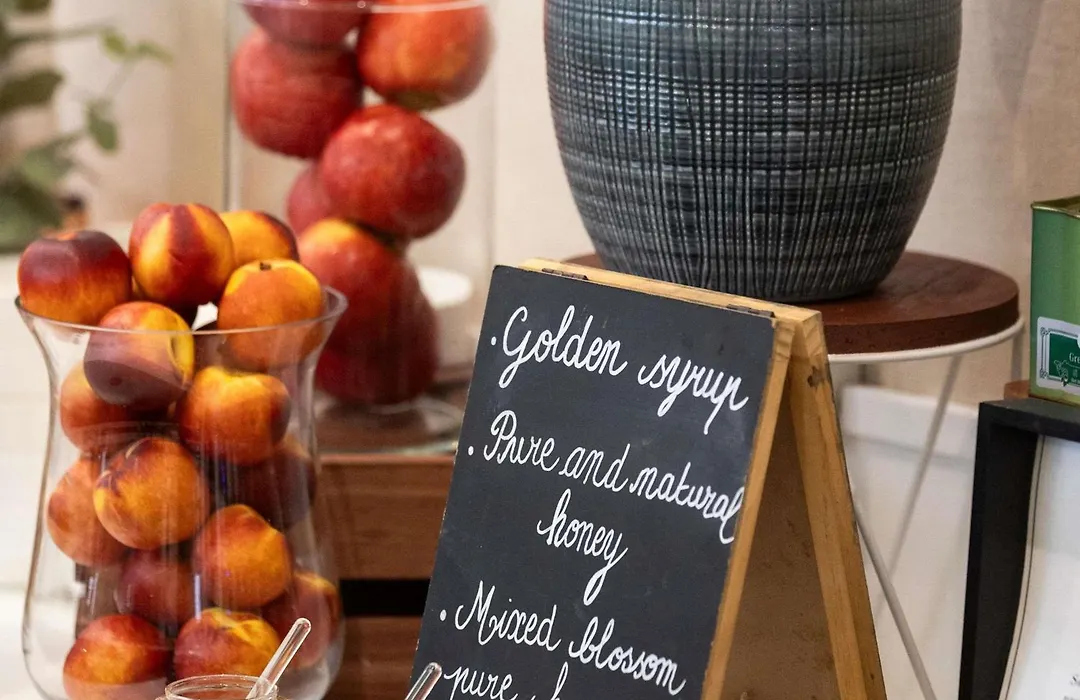 · Golden syrup
· Pure and natural
honey
· Mixed blossom
pure